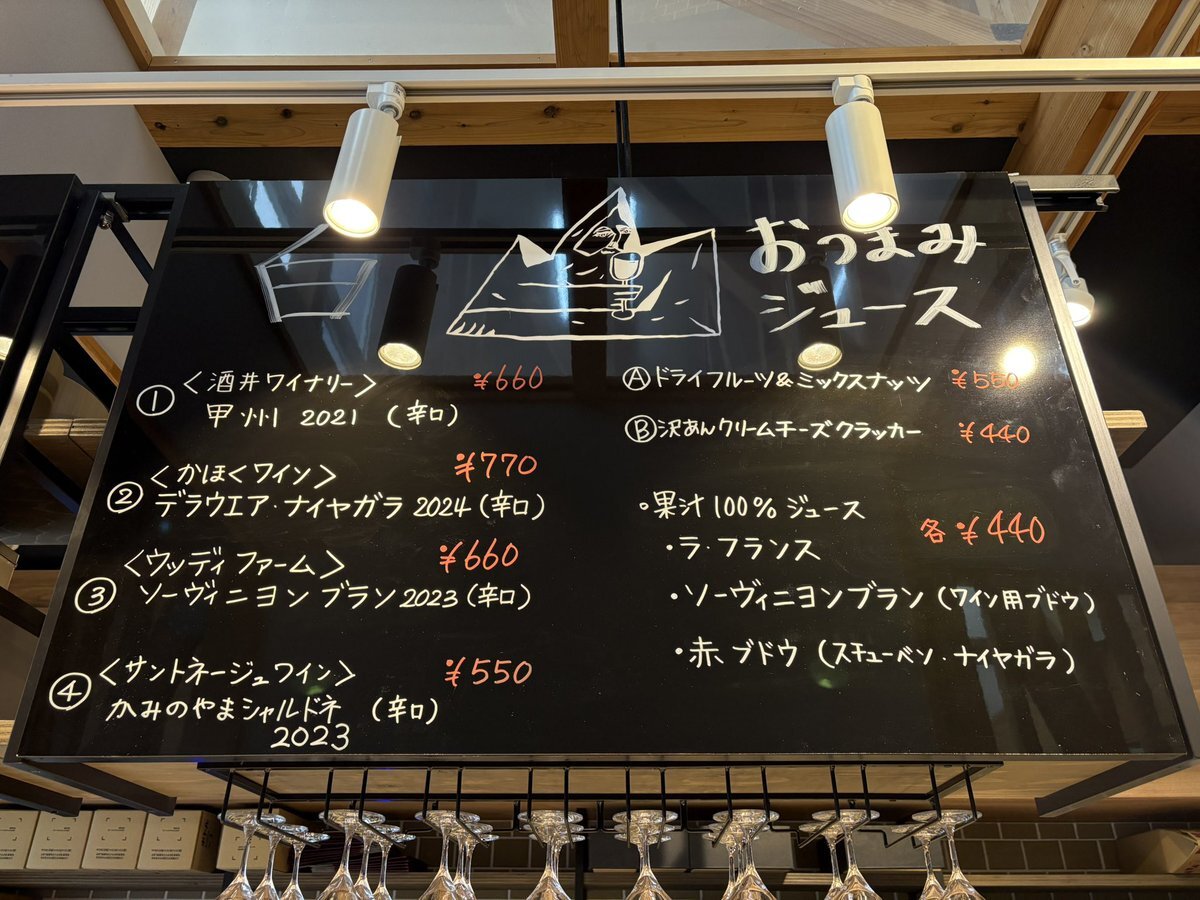 白
おつまみ
ジュース
① <酒井ワイナリー> ¥660
甲州 2021 (辛口)
② <かほくワイン> ¥770
デラウエア・ナイヤガラ 2024 (辛口)
③ <ウッディファーム> ¥660
ソーヴィニヨンブラン 2023 (辛口)
④ <サントネージュワイン> ¥550
かみのやまシャルドネ (辛口)
2023
Ⓐ ドライフルーツ&ミックスナッツ ¥550
Ⓑ 沢あんクリームチーズクラッカー ¥440
・果汁100% ジュース 各 ¥440
・ラ・フランス
・ソーヴィニヨンブラン (ワイン用ブドウ)
・赤ブドウ (スチューベン・ナイヤガラ)